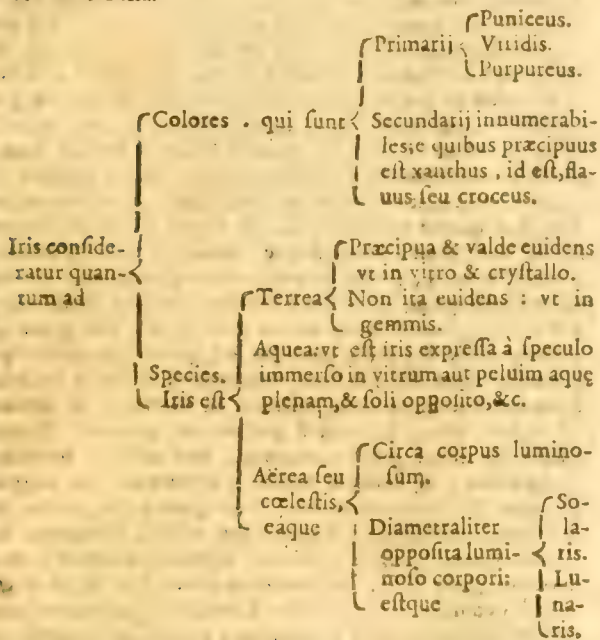 Iris conside-
ratur quan-
tum ad
Colores . qui sunt
Primarij
Puniceus.
Viridis.
Purpureus.
Secundarij innumerabi-
les; e quibus præcipuus
est xanthus , id est, fla-
uus seu croceus.
Species.
Iris est
Terrea
Præcipua & valde euidens
vt in vitro & crystallo.
Non ita euidens : vt in
gemmis.
Aquea: vt est iris expressa à speculo
immerso in vitrum aut peluim aquę
plenam, & soli opposito, &c.
Aërea seu
cœlestis,
eáque
Circa corpus lumino-
sum.
Diametraliter
opposita lumi-
noso corpori:
estque
So-
la-
ris.
Lu-
na-
ris.